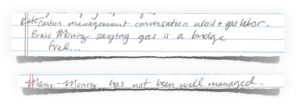 Carbon management conversation w/oil + gas labor.
Ernie Moniz saying gas is a bridge
fuel...
- Moniz has not been well managed...